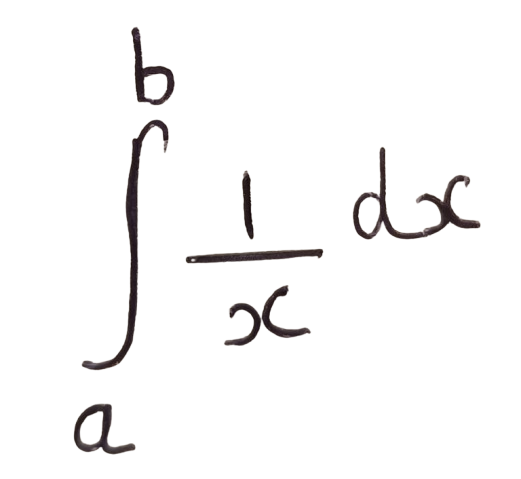 ∫_a^b \frac{1}{x} dx